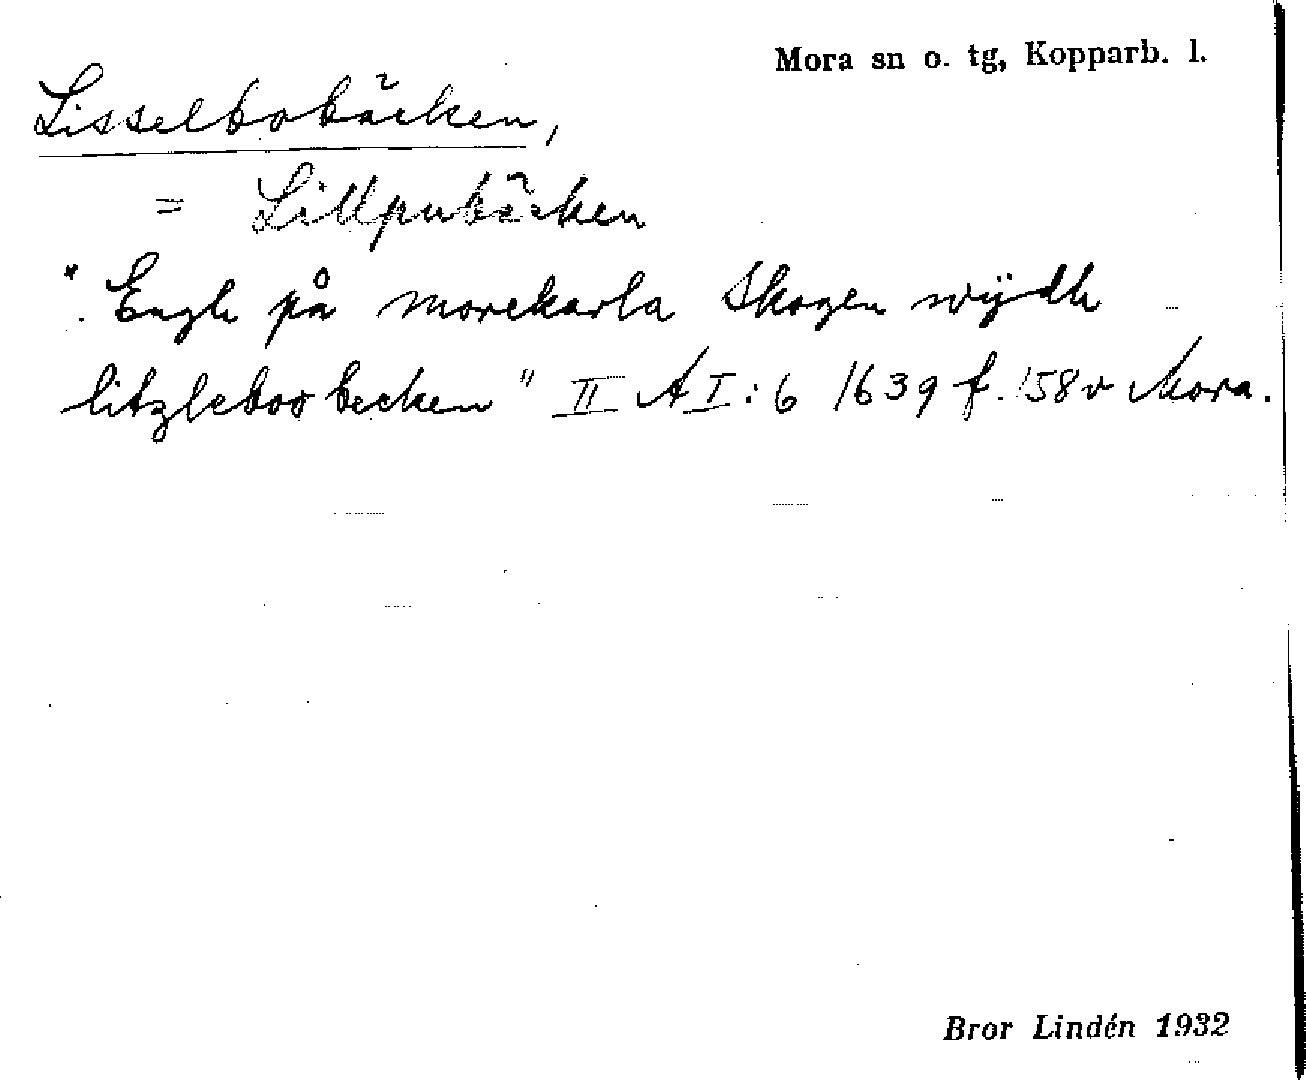 Mora sn o. tg, Kopparb. l.
Lisselbobäcken,
= Lillpubäcken
"Engh på morekarla Skogen wÿdh
litzleboobecken" II A I:6 1639 f. 158v Mora.
Bror Lindén 1932